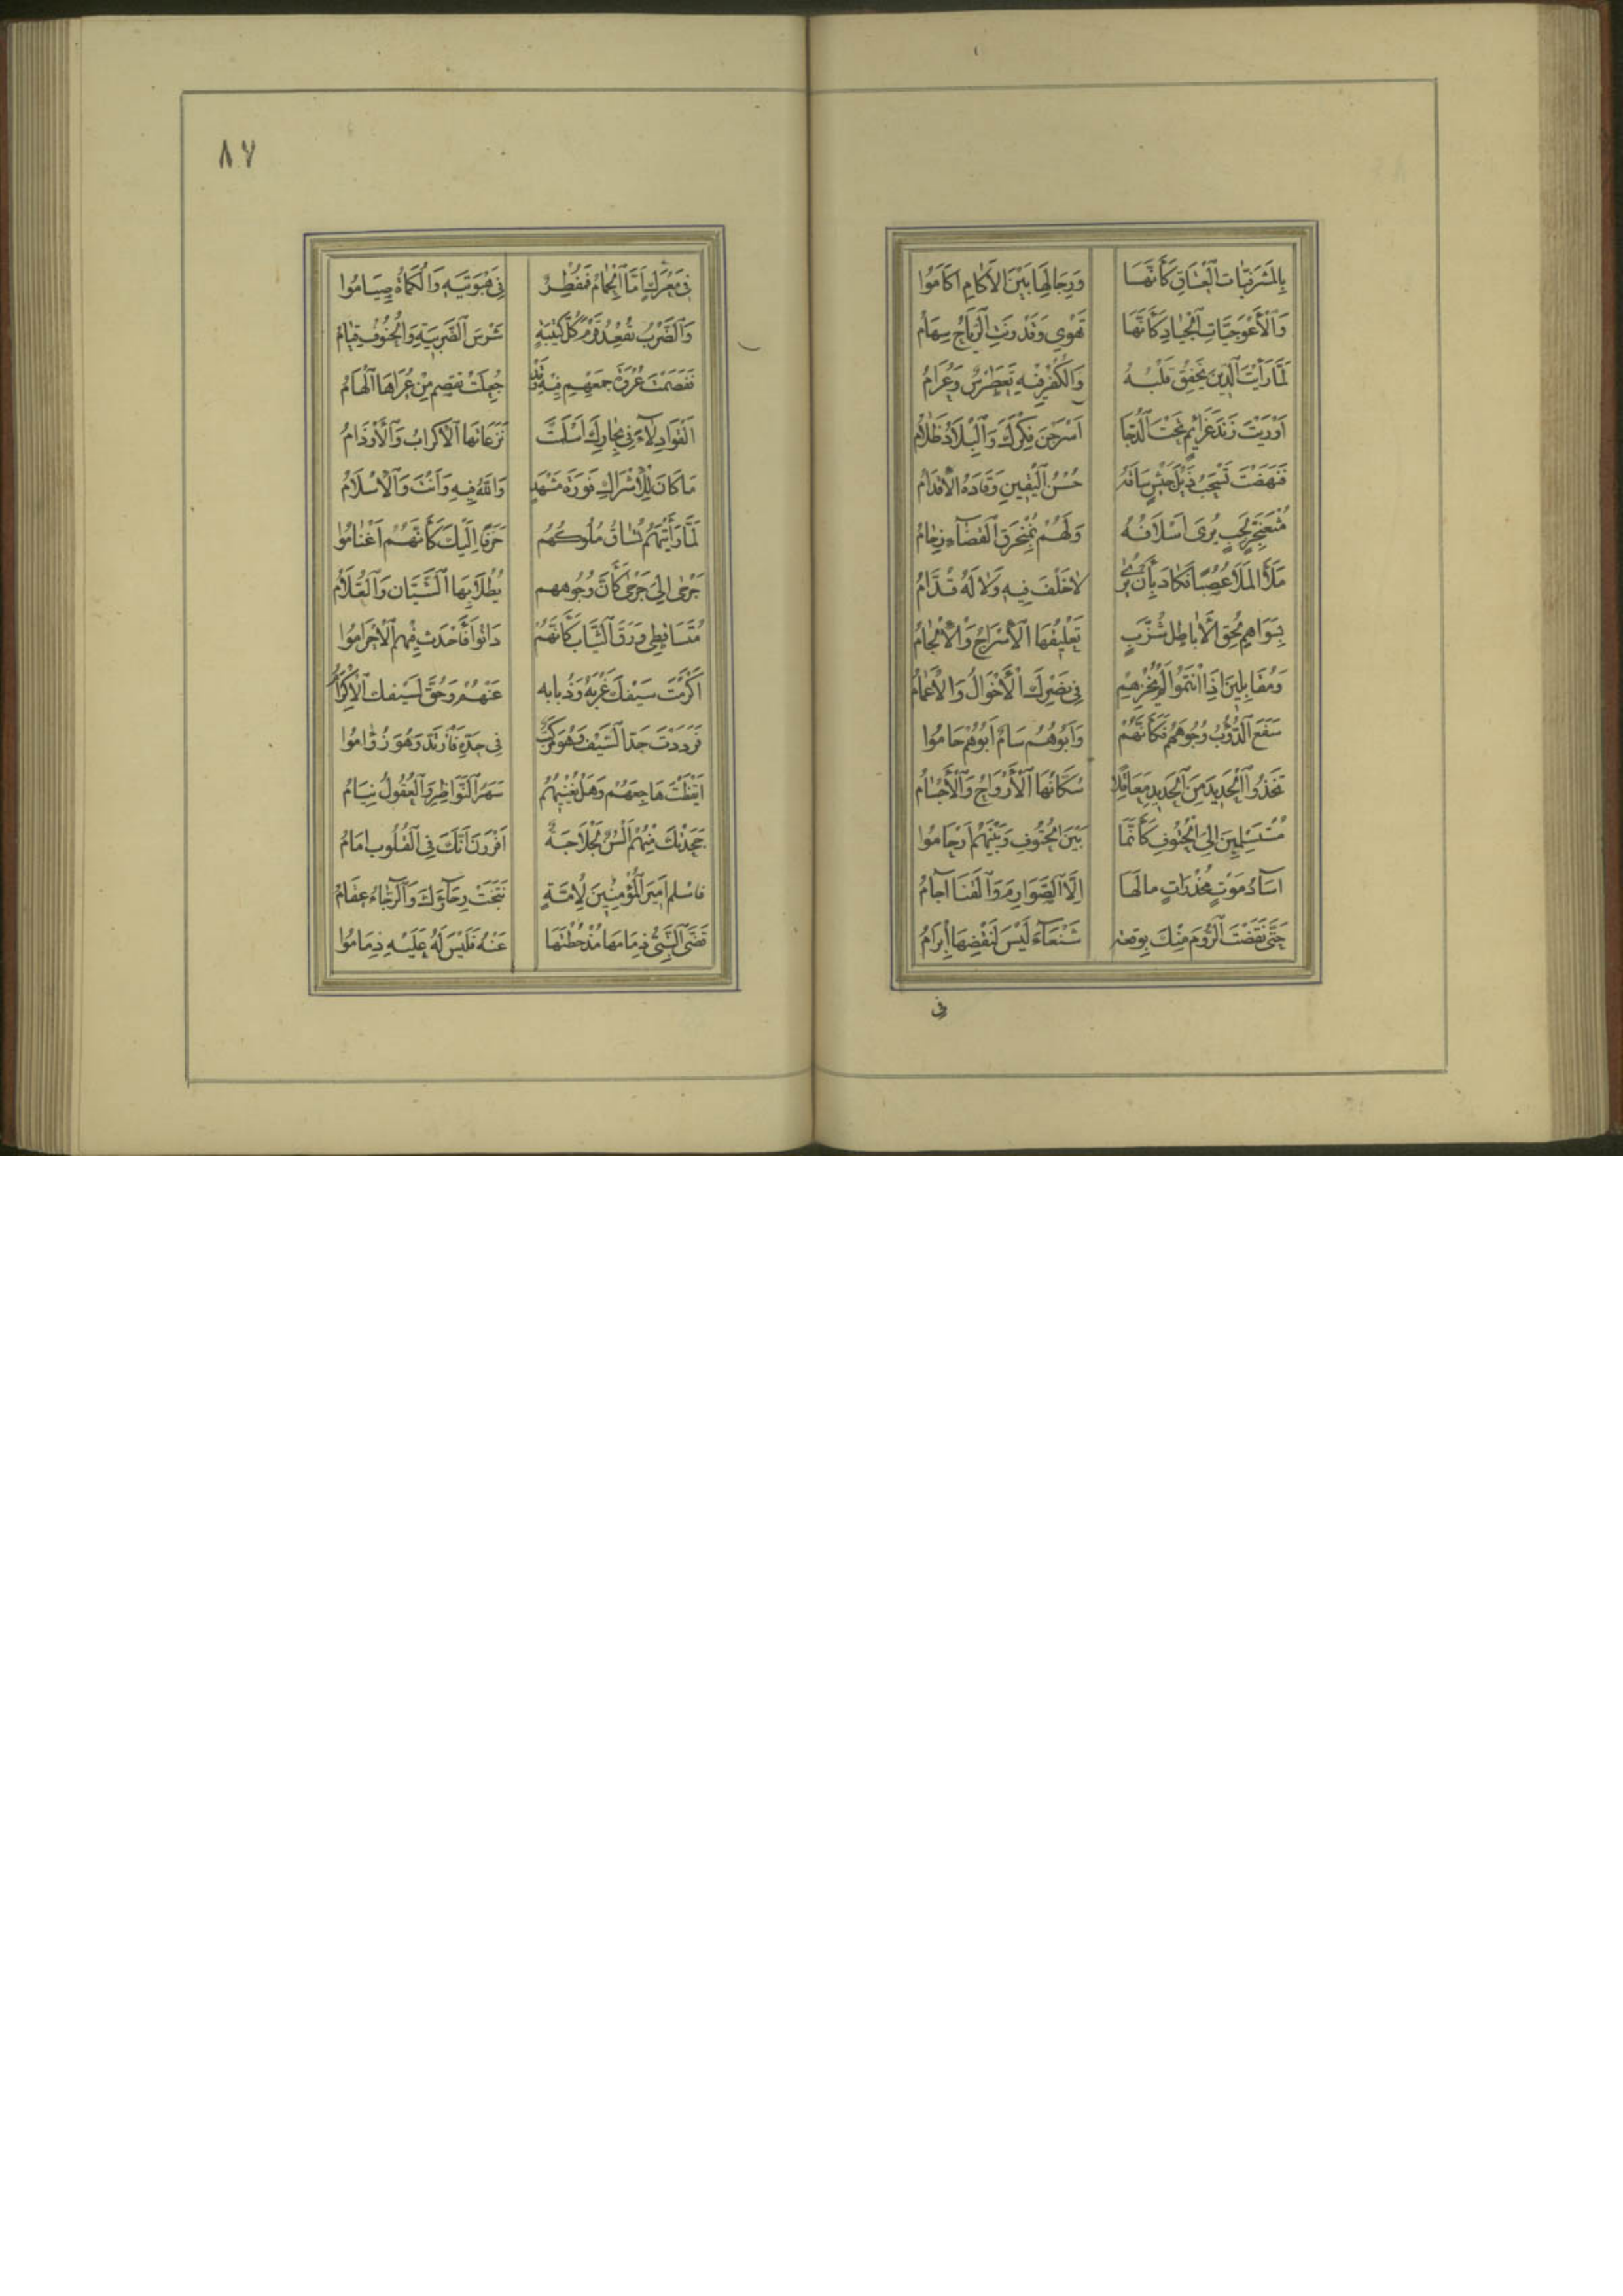 بِالمَشْرَفِيَّاتِ الْعِتَاقِ كَأَنَّهَا وَرِجَالَهَا بَيْنَ الأَكَامِ اكَامُوا
وَالْأَعْوَجِيَّاتِ الْجِيَادِ كَأَنَّهَا تَهْوِي وَقَدْ وَنَتِ الرِّيَاحُ سِهَامُ
لَمَّا رَأَيْتَ الدِّينَ يَخْفِقُ قَلْبُهُ وَالكُفْرُ فِيهِ تَغَطْرُسٌ وَعُرَامُ
أَوْرَيْتَ زَنْدَ عَزَائِمٍ تَحْتَ الدُّجَا أَسْرَجْنَ فِكْرَكَ وَالْبِلَادُ ظَلَامُ
فَنَهَضْتَ تَسْحَبُ ذَيْلَ جَيْشٍ سَاقَهُ حُسْنُ الْيَقِينِ وَقَادَهُ الْأَقْدَامُ
مُثْعَنْجِرٍ لَجِبٍ يُرَى أَسْلَافُهُ وَلَهُمْ بِمُنْخَرَقِ الْفَضَاءِ زِحَامُ
مَلَأَ المَلَا عُصَبًا فَكَادَ بِأَنْ يُرَى لَا خَلْفَ فِيهِ وَلَا لَهُ قُدَّامُ
بِسَوَاهِمٍ لُحُقِ الْأَيَاطِلِ شُزَّبٍ تَعْلِيقُهَا الْأَسْرَاجُ وَالْأَلْجَامُ
وَمُقَابِلِينَ إِذَا انْتَمَوْا لَمْ يُخْزِهِمْ فِي نَصْرِكَ الْأَخْوَالُ وَالْأَعْمَامُ
سَفَعَ الدُّؤُبُ وُجُوهَهُمْ فَكَأَنَّهُمْ وَأَبُوهُمْ سَامٌ أَبُوهُمْ حَامُوا
تَخِذُوا الْحَدِيدَ مِنَ الْحَدِيدِ مَعَاقِلًا سُكَّانُهَا الْأَرْوَاحُ وَالْأَجْسَامُ
مُسْتَسْلِمِينَ إِلَى الْحُتُوفِ كَأَنَّمَا بَيْنَ الْحُتُوفِ وَبَيْنَهُمْ أَرْحَامُوا
آسَادُ مَوْتٍ مُخْدَرَاتٍ مَا لَهَا إِلَّا الصَّوَارِمَ وَالْقَنَا آجَامُ
حَتَّى نَقَضْتَ الرُّومَ مِنْكَ بِوَقْعَةٍ شَنْعَاءَ لَيْسَ لِنَقْضِهَا إِبْرَامُ
فى
٨٧
فِي مَعْرَكٍ أَمَّا الْحِمَامُ فَمُفْطِرٌ فِي هَبْوَتَيْهِ وَالْكُمَاةُ صِيَامُوا
وَالضَّرْبُ يُقْعِدُ قَوْمَ كُلِّ كَتِيبَةٍ شَرِسَ الضَّرِيبَةِ وَالْحُتُوفُ قِيَامُ
فَفَصَمْتَ عُرْوَةَ جَمْعِهِمْ فِيهِ وَقَدْ جَعَلَتْ تَفَصَّمُ مِنْ عُرَاهَا الْهَامُ
أَلْقَوْا دِلَاءً فِي بِحَارِكَ أَسْلَمَتْ نَزَعَاتِهَا الْأَكْرَابُ وَالْأَوْذَامُ
مَا كَانَ لِلْأَشْرَاكِ فَوْزَةُ مَشْهَدٍ وَاللهُ فِيهِ وَأَنْتَ وَالْأِسْلَامُ
لَمَّا رَأَيْتَهُمْ تُسَاقُ مُلُوكُهُمْ حِزَقًا إِلَيْكَ كَأَنَّهُمْ أَغْنَامُوا
جَرْحَى إِلَى جَرْحَى كَأَنَّ وُجُوهَهُمْ يُطْلَى بِهَا الشَّيَّانُ وَالْعُلَّامُ
مُتَسَاقِطِي وَرَقِ الثِّيَابِ كَأَنَّهُمْ دَانُوا فَأُحْدِثَ فِيهِمُ الْأِحْرَامُوا
أَكْرَمْتَ سَيْفَكَ غَرْبَهُ وَذُبَابَهُ عَنْهُمْ وَحُقَّ لِسَيْفِكَ الْأِكْرَامُ
فَرَدَدْتَ حَدَّ السَّيْفِ وَهُوَ مُرَكَّبٌ فِي حَدِّهِ فَارْتَدَّ وَهُوَ زُؤَامُوا
أَيْقَظْتَ هَاجِعَهُمْ وَهَلْ يُغْنِيهُمُ سَهَرُ النَّوَاظِرِ وَالْعُقُولُ نِيَامُ
جَحَدَتْكَ مِنْهُمْ أَلْسُنٌ لَجْلَاجَةٌ أَقْرَرْنَ أَنَّكَ فِي الْقُلُوبِ إِمَامُ
فَاسْلَمْ أَمِيرَ الْمُؤْمِنِينَ لِأُمَّةٍ نَتَجَتْ رَجَاؤَكَ وَالرَّجَاءُ عِقَامُ
قَضَى النَّبِيُّ ذِمَامَهَا مُذْ حُطْتَهَا عَنْهُ فَلَيْسَ لَهُ عَلَيْهِ ذِمَامُوا